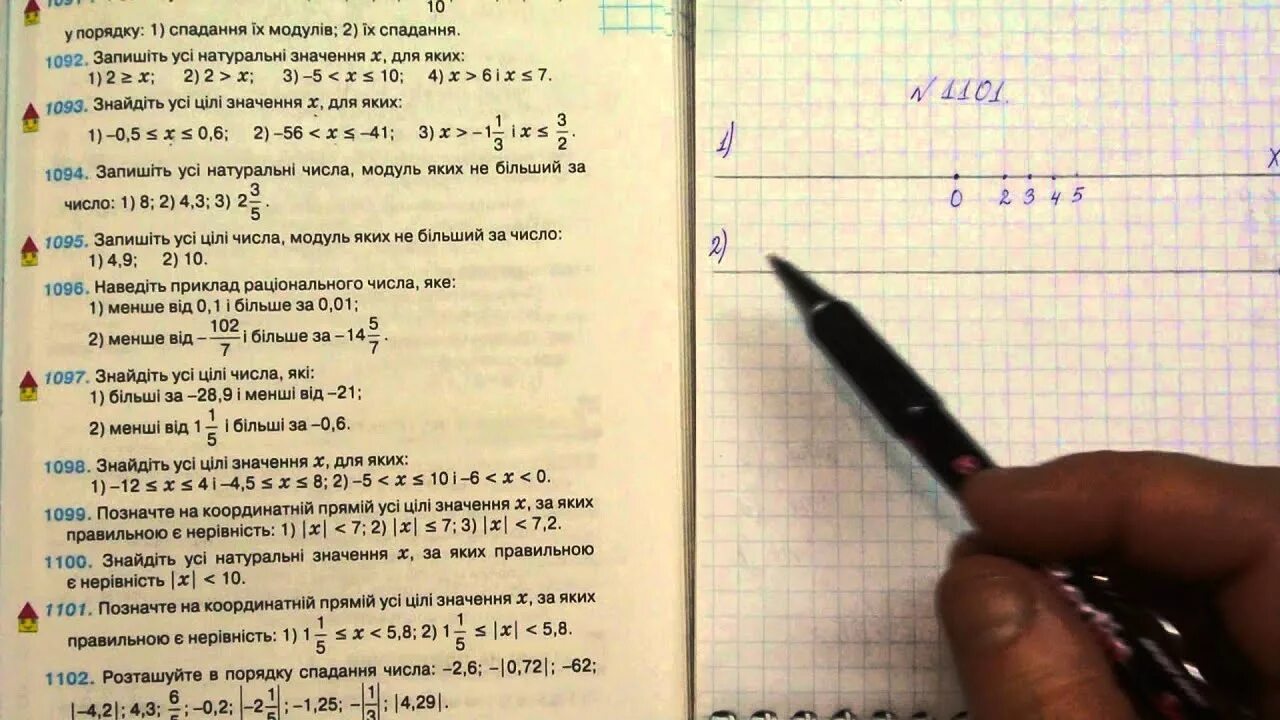 10
у порядку: 1) спадання їх модулів; 2) їх спадання.
1092. Запишіть усі натуральні значення x, для яких:
1) 2 ≥ x; 2) 2 > x; 3) –5 < x ≤ 10; 4) x > 6 і x ≤ 7.
1093. Знайдіть усі цілі значення x, для яких:
1) –0,5 ≤ x ≤ 0,6; 2) –56 < x ≤ –41; 3) x > –1 1/3 і x ≤ 3/2.
1094. Запишіть усі натуральні числа, модуль яких не більший за
число: 1) 8; 2) 4,3; 3) 2 3/5.
1095. Запишіть усі цілі числа, модуль яких не більший за число:
1) 4,9; 2) 10.
1096. Наведіть приклад раціонального числа, яке:
1) менше від 0,1 і більше за 0,01;
2) менше від –102/7 і більше за –14 5/7.
1097. Знайдіть усі цілі числа, які:
1) більші за –28,9 і менші від –21;
2) менші від 1 1/5 і більші за –0,6.
1098. Знайдіть усі цілі значення x, для яких:
1) –12 ≤ x ≤ 4 і –4,5 ≤ x ≤ 8; 2) –5 < x ≤ 10 і –6 < x < 0.
1099. Позначте на координатній прямій усі цілі значення x, за яких
правильною є нерівність: 1) |x| < 7; 2) |x| ≤ 7; 3) |x| < 7,2.
1100. Знайдіть усі натуральні значення x, за яких правильною
є нерівність |x| < 10.
1101. Позначте на координатній прямій усі цілі значення x, за яких
правильною є нерівність: 1) 1 1/5 ≤ x < 5,8; 2) 1 1/5 ≤ |x| < 5,8.
1102. Розташуйте в порядку спадання числа: –2,6; –|0,72|; –62;
|–4,2|; 4,3; 6/5; –0,2; |–2 1/5|; –1,25; –|1/3|; |4,29|.
№1101.
1)
x
0 2 3 4 5
2)